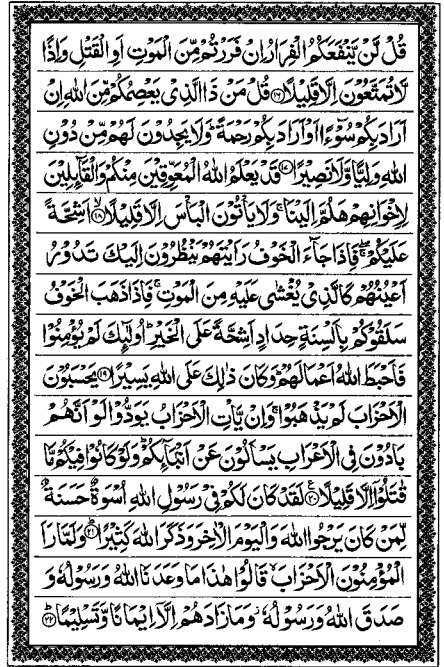 قُلْ لَّنْ يَّنْفَعَكُمُ الْفِرَارُ اِنْ فَرَرْتُمْ مِّنَ الْمَوْتِ اَوِ الْقَتْلِ وَاِذًا
لَّا تُمَتَّعُوْنَ اِلَّا قَلِيْلًا ﴿۱۶﴾ قُلْ مَنْ ذَا الَّذِيْ يَعْصِمُكُمْ مِّنَ اللّٰهِ اِنْ
اَرَادَ بِكُمْ سُوْٓءًا اَوْ اَرَادَ بِكُمْ رَحْمَةً ؕ وَلَا يَجِدُوْنَ لَهُمْ مِّنْ دُوْنِ
اللّٰهِ وَلِيًّا وَّلَا نَصِيْرًا ﴿۱۷﴾ قَدْ يَعْلَمُ اللّٰهُ الْمُعَوِّقِيْنَ مِنْكُمْ وَالْقَآئِلِيْنَ
لِاِخْوَانِهِمْ هَلُمَّ اِلَيْنَا ۚ وَلَا يَاْتُوْنَ الْبَاْسَ اِلَّا قَلِيْلًا ﴿۱۸﴾ۙ اَشِحَّةً
عَلَيْكُمْ ۖۚ فَاِذَا جَآءَ الْخَوْفُ رَاَيْتَهُمْ يَنْظُرُوْنَ اِلَيْكَ تَدُوْرُ
اَعْيُنُهُمْ كَالَّذِيْ يُغْشٰى عَلَيْهِ مِنَ الْمَوْتِ ۚ فَاِذَا ذَهَبَ الْخَوْفُ
سَلَقُوْكُمْ بِاَلْسِنَةٍ حِدَادٍ اَشِحَّةً عَلَى الْخَيْرِ ؕ اُولٰٓئِكَ لَمْ يُؤْمِنُوْا
فَاَحْبَطَ اللّٰهُ اَعْمَالَهُمْ ؕ وَكَانَ ذٰلِكَ عَلَى اللّٰهِ يَسِيْرًا ﴿۱۹﴾ يَحْسَبُوْنَ
الْاَحْزَابَ لَمْ يَذْهَبُوْا ۚ وَاِنْ يَّاْتِ الْاَحْزَابُ يَوَدُّوْا لَوْ اَنَّهُمْ
بَادُوْنَ فِي الْاَعْرَابِ يَسْاَلُوْنَ عَنْ اَنْۢبَآئِكُمْ ؕ وَلَوْ كَانُوْا فِيْكُمْ مَّا
قٰتَلُوْٓا اِلَّا قَلِيْلًا ﴿۲۰﴾ۧ لَقَدْ كَانَ لَكُمْ فِيْ رَسُوْلِ اللّٰهِ اُسْوَةٌ حَسَنَةٌ
لِّمَنْ كَانَ يَرْجُوا اللّٰهَ وَالْيَوْمَ الْاٰخِرَ وَذَكَرَ اللّٰهَ كَثِيْرًا ﴿۲۱﴾ؕ وَلَمَّا رَاَ
الْمُؤْمِنُوْنَ الْاَحْزَابَ ۙ قَالُوْا هٰذَا مَا وَعَدَنَا اللّٰهُ وَرَسُوْلُهٗ وَ
صَدَقَ اللّٰهُ وَرَسُوْلُهٗ ۡ وَمَا زَادَهُمْ اِلَّآ اِيْمَانًا وَّتَسْلِيْمًا ﴿۲۲﴾ؕ